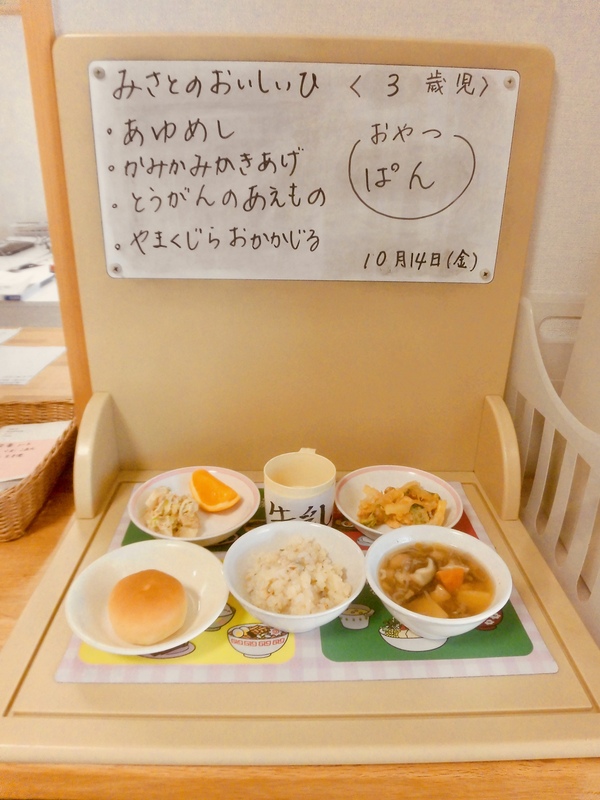 みさとのおいしいひ 〈 3 歳児〉
・あゆめし
・かみかみかきあげ
・とうがんのあえもの
・やまくじらおかかじる
おやつ
ぱん
10月14日(金)
牛乳